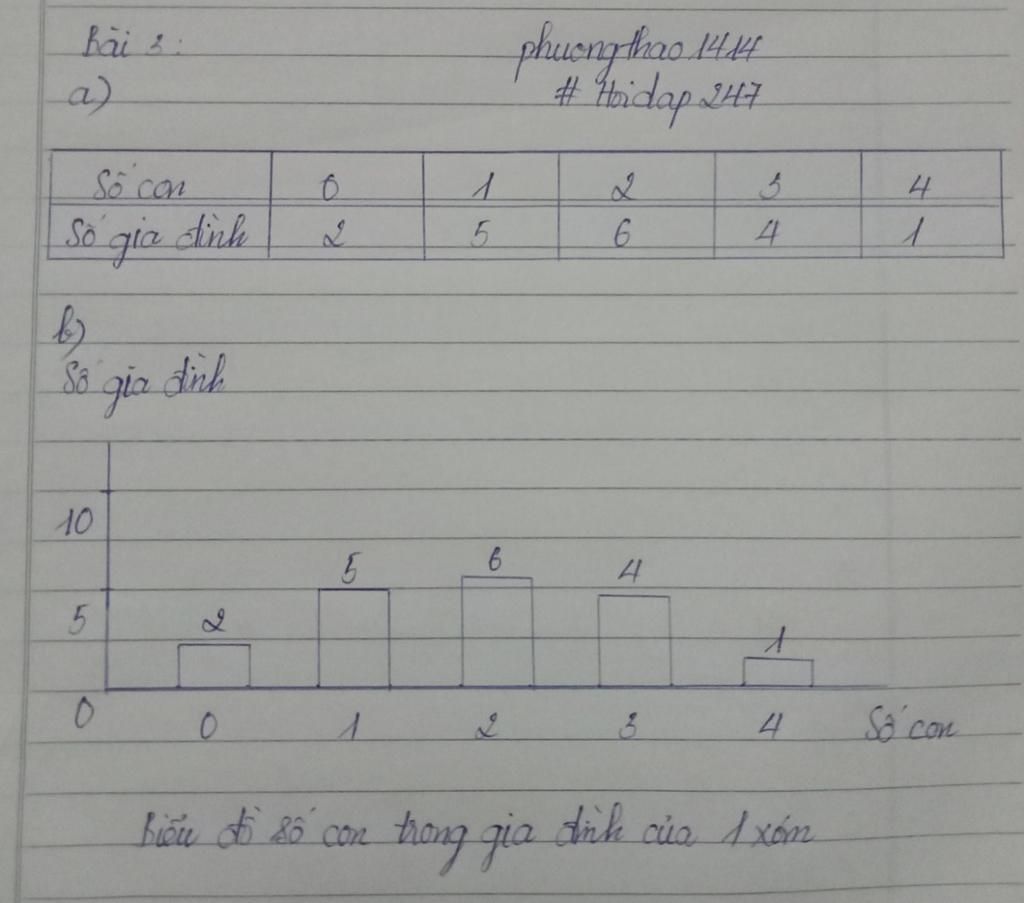 Bài 3:
phuongthao1414
a)
# Hoidap247
Số con 0 1 2 3 4
Số gia đình 2 5 6 4 1
b)
Số gia đình
10
5
0
2 5 6 4 1
0 1 2 3 4 Số con
Biểu đồ số con trong gia đình của 1 xóm